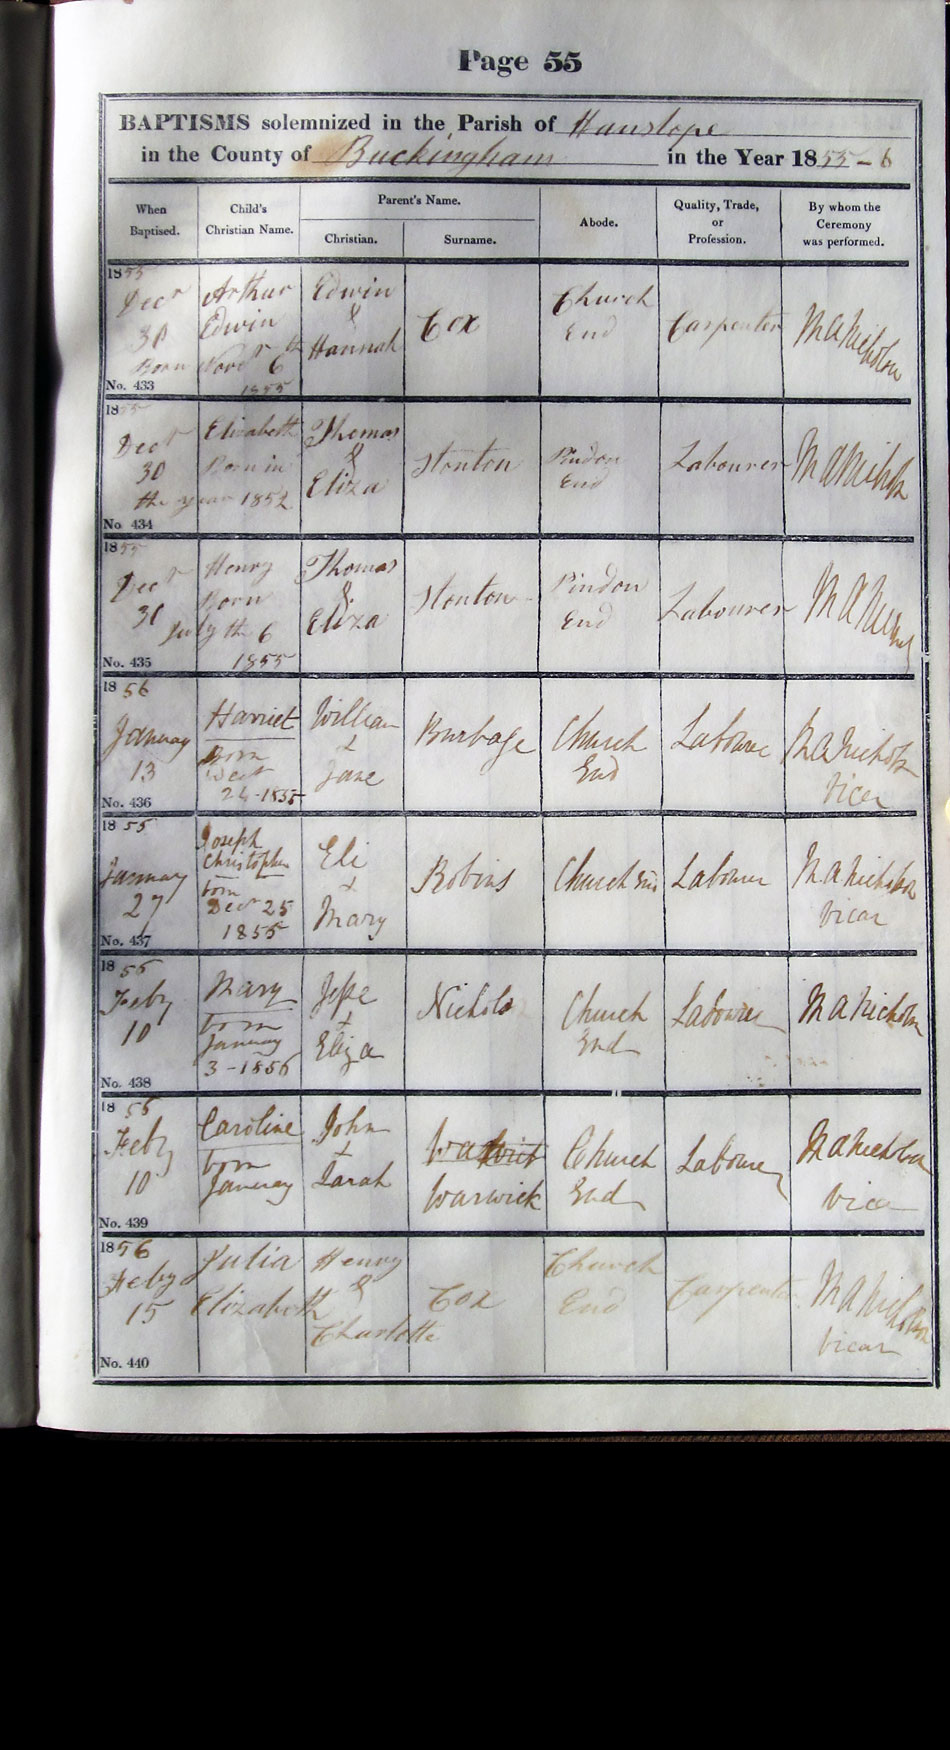 Page 55
BAPTISMS solemnized in the Parish of Hanslope
in the County of Buckingham in the Year 1855-6
When Baptised.
Child's Christian Name.
Parent's Name.
Christian.
Surname.
Abode.
Quality, Trade, or Profession.
By whom the Ceremony was performed.
1855
Decr
30
Born Novr 6th
1855
No. 433
Arthur
Edwin
Edwin
&
Hannah
Cox
Church
End
Carpenter
M A Nicholson
1855
Decr
30
Elizabeth
Born in
the year 1852
No 434
Thomas
&
Eliza
Stonton
Pindon
End
Labourer
M A Nichols
1855
Decr
31
Henry
Born
July the 6
1855
No. 435
Thomas
&
Eliza
Stonton
Pindon
End
Labourer
M A
1856
January
13
No. 436
Harriet
Born
Decr
24-1855
William
+
Jane
Burbage
Church
End
Labourer
M A Nicholson
Vicar
1855
January
27
No. 437
Joseph
Christopher
born
Decr 25
1855
Eli
+
Mary
Robins
Church End
Labourer
M A Nicholson
Vicar
1856
Feby
10
No. 438
Mary
born
January
3-1856
Jesse
+
Eliza
Nichols
Church
End
Labourer
M A Nicholson
1856
Feby
10
No. 439
Caroline
born
January
John
+
Sarah
Warwick
Church
End
Labourer
M A Nicholson
Vicar
1856
Feby
15
No. 440
Julia
Elizabeth
Henry
&
Charlotte
Cox
Church
End
Carpenter
M A Nicholson
Vicar